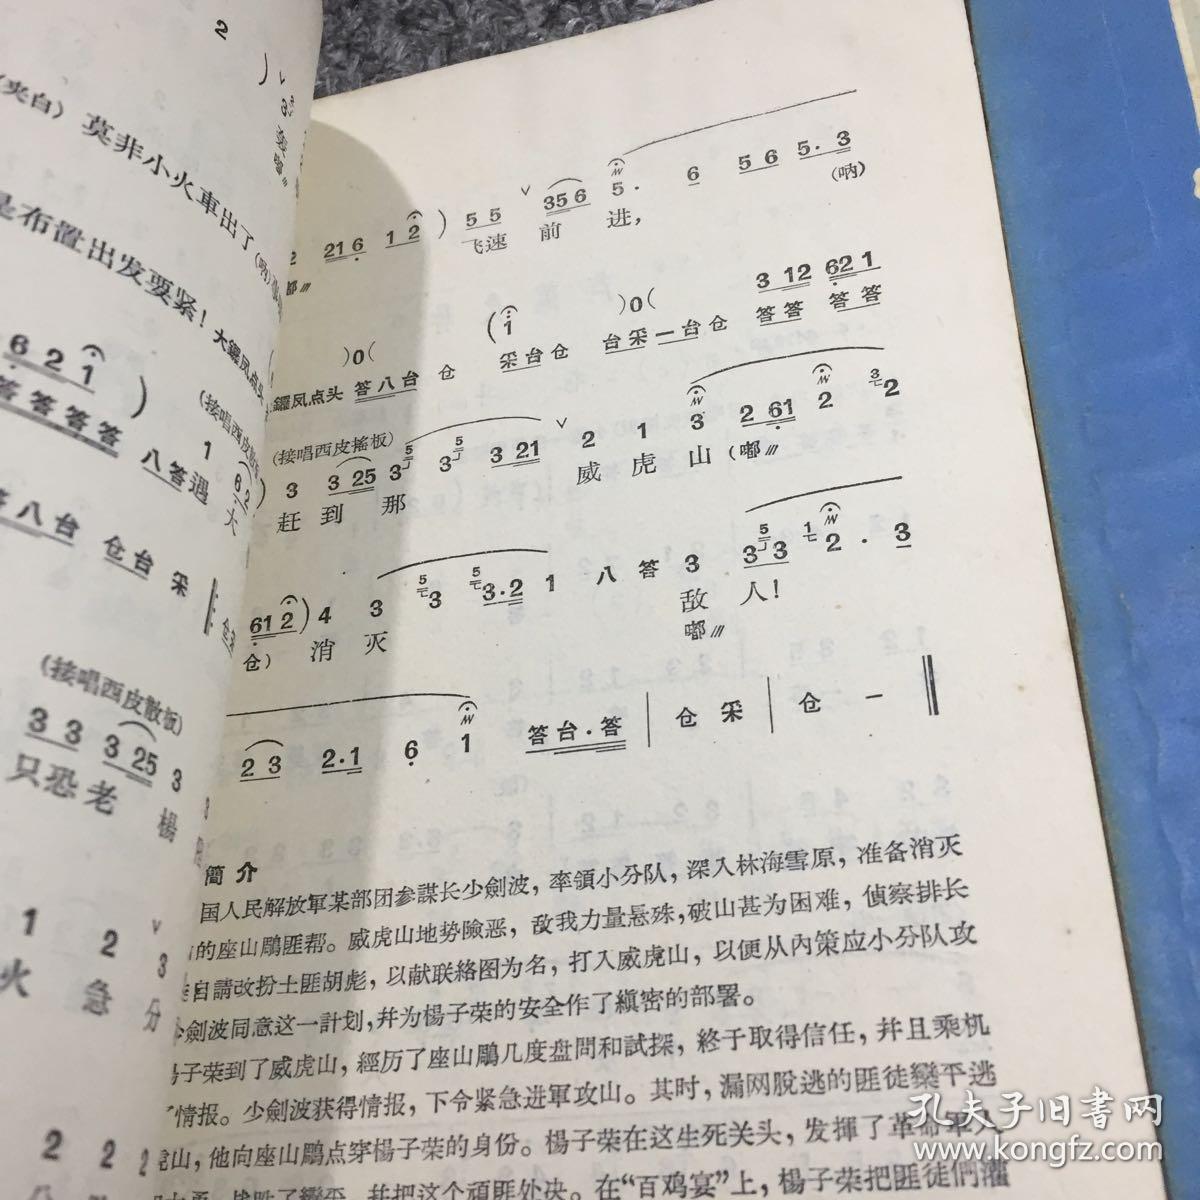 (夹白) 莫非小火車出了(吶)
是布置出发要紧! 大鑼凤点头
6 2 1 )
答 答 答 答
(接唱西皮散
八 答 遇 大
八 台 仓 台 采
(接唱西皮散板)
3 3 3 25 3
只恐老 楊
1 2 3
火 急 分
2 2 2
2 216 1 2 ) 5 5 356 5. 6 5 6 5. 3
嘟 飞速 前 进, (吶)
)0( ( 1 )0( 3 12 62 1
鑼凤点头 答八台 仓 采台仓 台采一台仓 答答 答答
(接唱西皮搖板)
) 3 3 25 3 5 3 5 3 21 2 1 3 2 61 2 3 2
赶 到 那 威 虎 山 (嘟
61 2 ) 4 3 5 3 5 3·2 1 八 答 3 3 5 3 1 2 · 3
仓) 消 灭 敌 人!
嘟
2 3 2·1 6 1 答台·答 | 仓 采 | 仓 一
簡 介
国人民解放軍某部团参謀长少劍波,率領小分队,深入林海雪原,准备消灭
的座山鵰匪帮。威虎山地势險恶,敌我力量悬殊,破山甚为困难,偵察排长
自請改扮土匪胡彪,以献联絡图为名,打入威虎山,以便从內策应小分队攻
劍波同意这一計划,幷为楊子荣的安全作了縝密的部署。
子荣到了威虎山,經历了座山鵰几度盘問和試探,終于取得信任,幷且乘机
了情报。少劍波获得情报,下令紧急进軍攻山。其时,漏网脫逃的匪徒欒平逃
山,他向座山鵰点穿楊子荣的身份。楊子荣在这生死关头,发揮了革命軍人
战胜了欒平,幷把这个頑匪处决。在“百鸡宴”上,楊子荣把匪徒們灌
孔夫子旧書网
www.kongfz.com